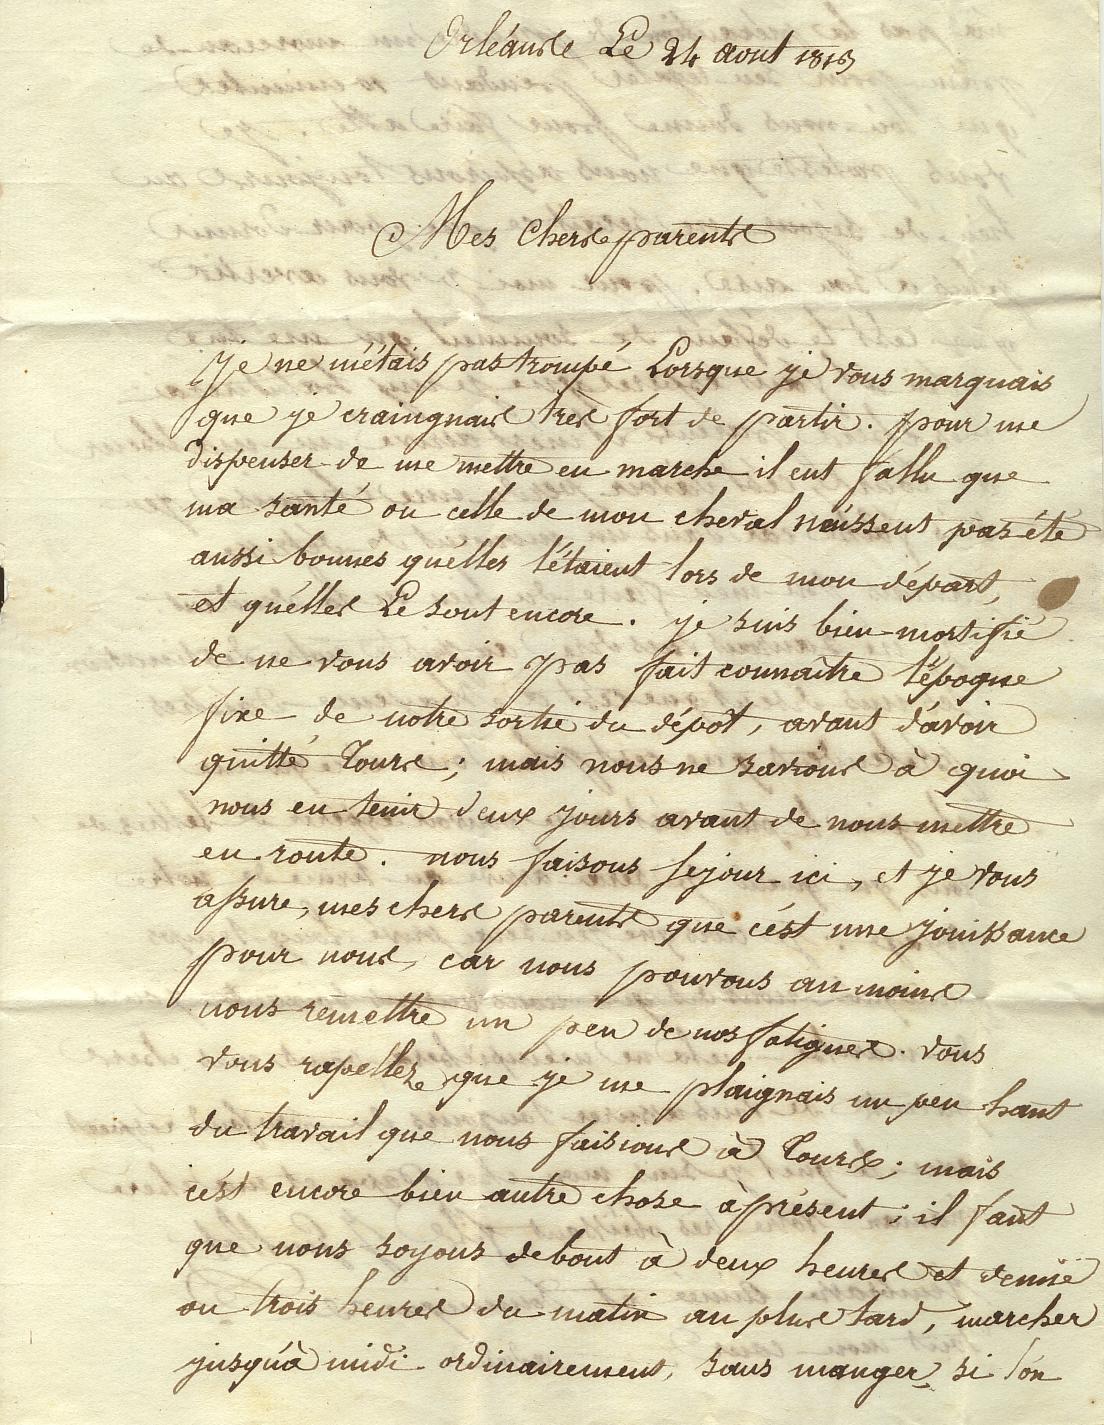 Orléans Le 24 aout 1813
Mes Chers parents
je ne m'étais pas trompé Lorsque je vous marquais
que je craingnais très fort de partir. pour me
dispenser de me mettre en marche il eut fallu que
ma santé ou celle de mon cheval n'eussent pas été
aussi bonnes qu'elles l'étaient lors de mon départ,
et qu'elles Le sont encore. je suis bien mortifié
de ne vous avoir pas fait connaître l'époque
fixe de notre sortie du dépôt, avant d'avoir
quitté Tours; mais nous ne savions à quoi
nous en tenir deux jours avant de nous mettre
en route. nous faisons sejour ici, et je vous
assure, mes chers parents que c'est une jouissance
pour nous, car nous pouvons au moins
nous remettre un peu de nos fatigues. vous
vous rapellez que je me plaignais un peu haut
du travail que nous faisions à Tours; mais
c'est encore bien autre chose à présent; il faut
que nous soyons debout à deux heures et demie
ou trois heures du matin au plus tard, marcher
jusqu'à midi ordinairement, sans manger, si l'on